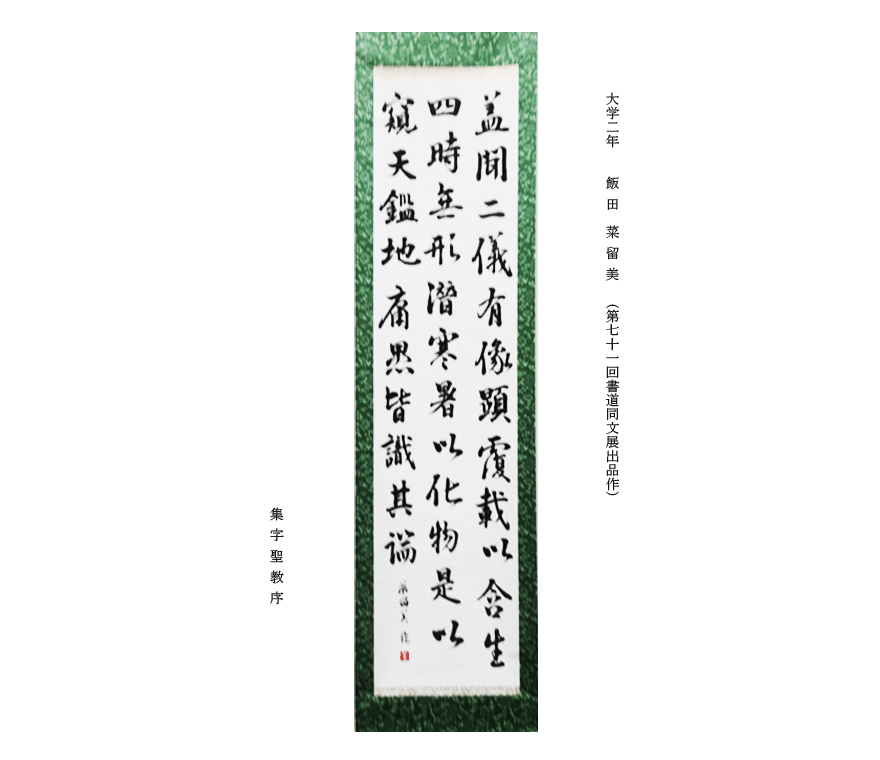 大学二年　飯田菜留美　（第七十一回書道同文展出品作）
蓋聞二儀有像顕覆載以含生
四時無形潜寒暑以化物是以
窺天鑑地庸愚皆識其端
菜留美臨
集字聖教序